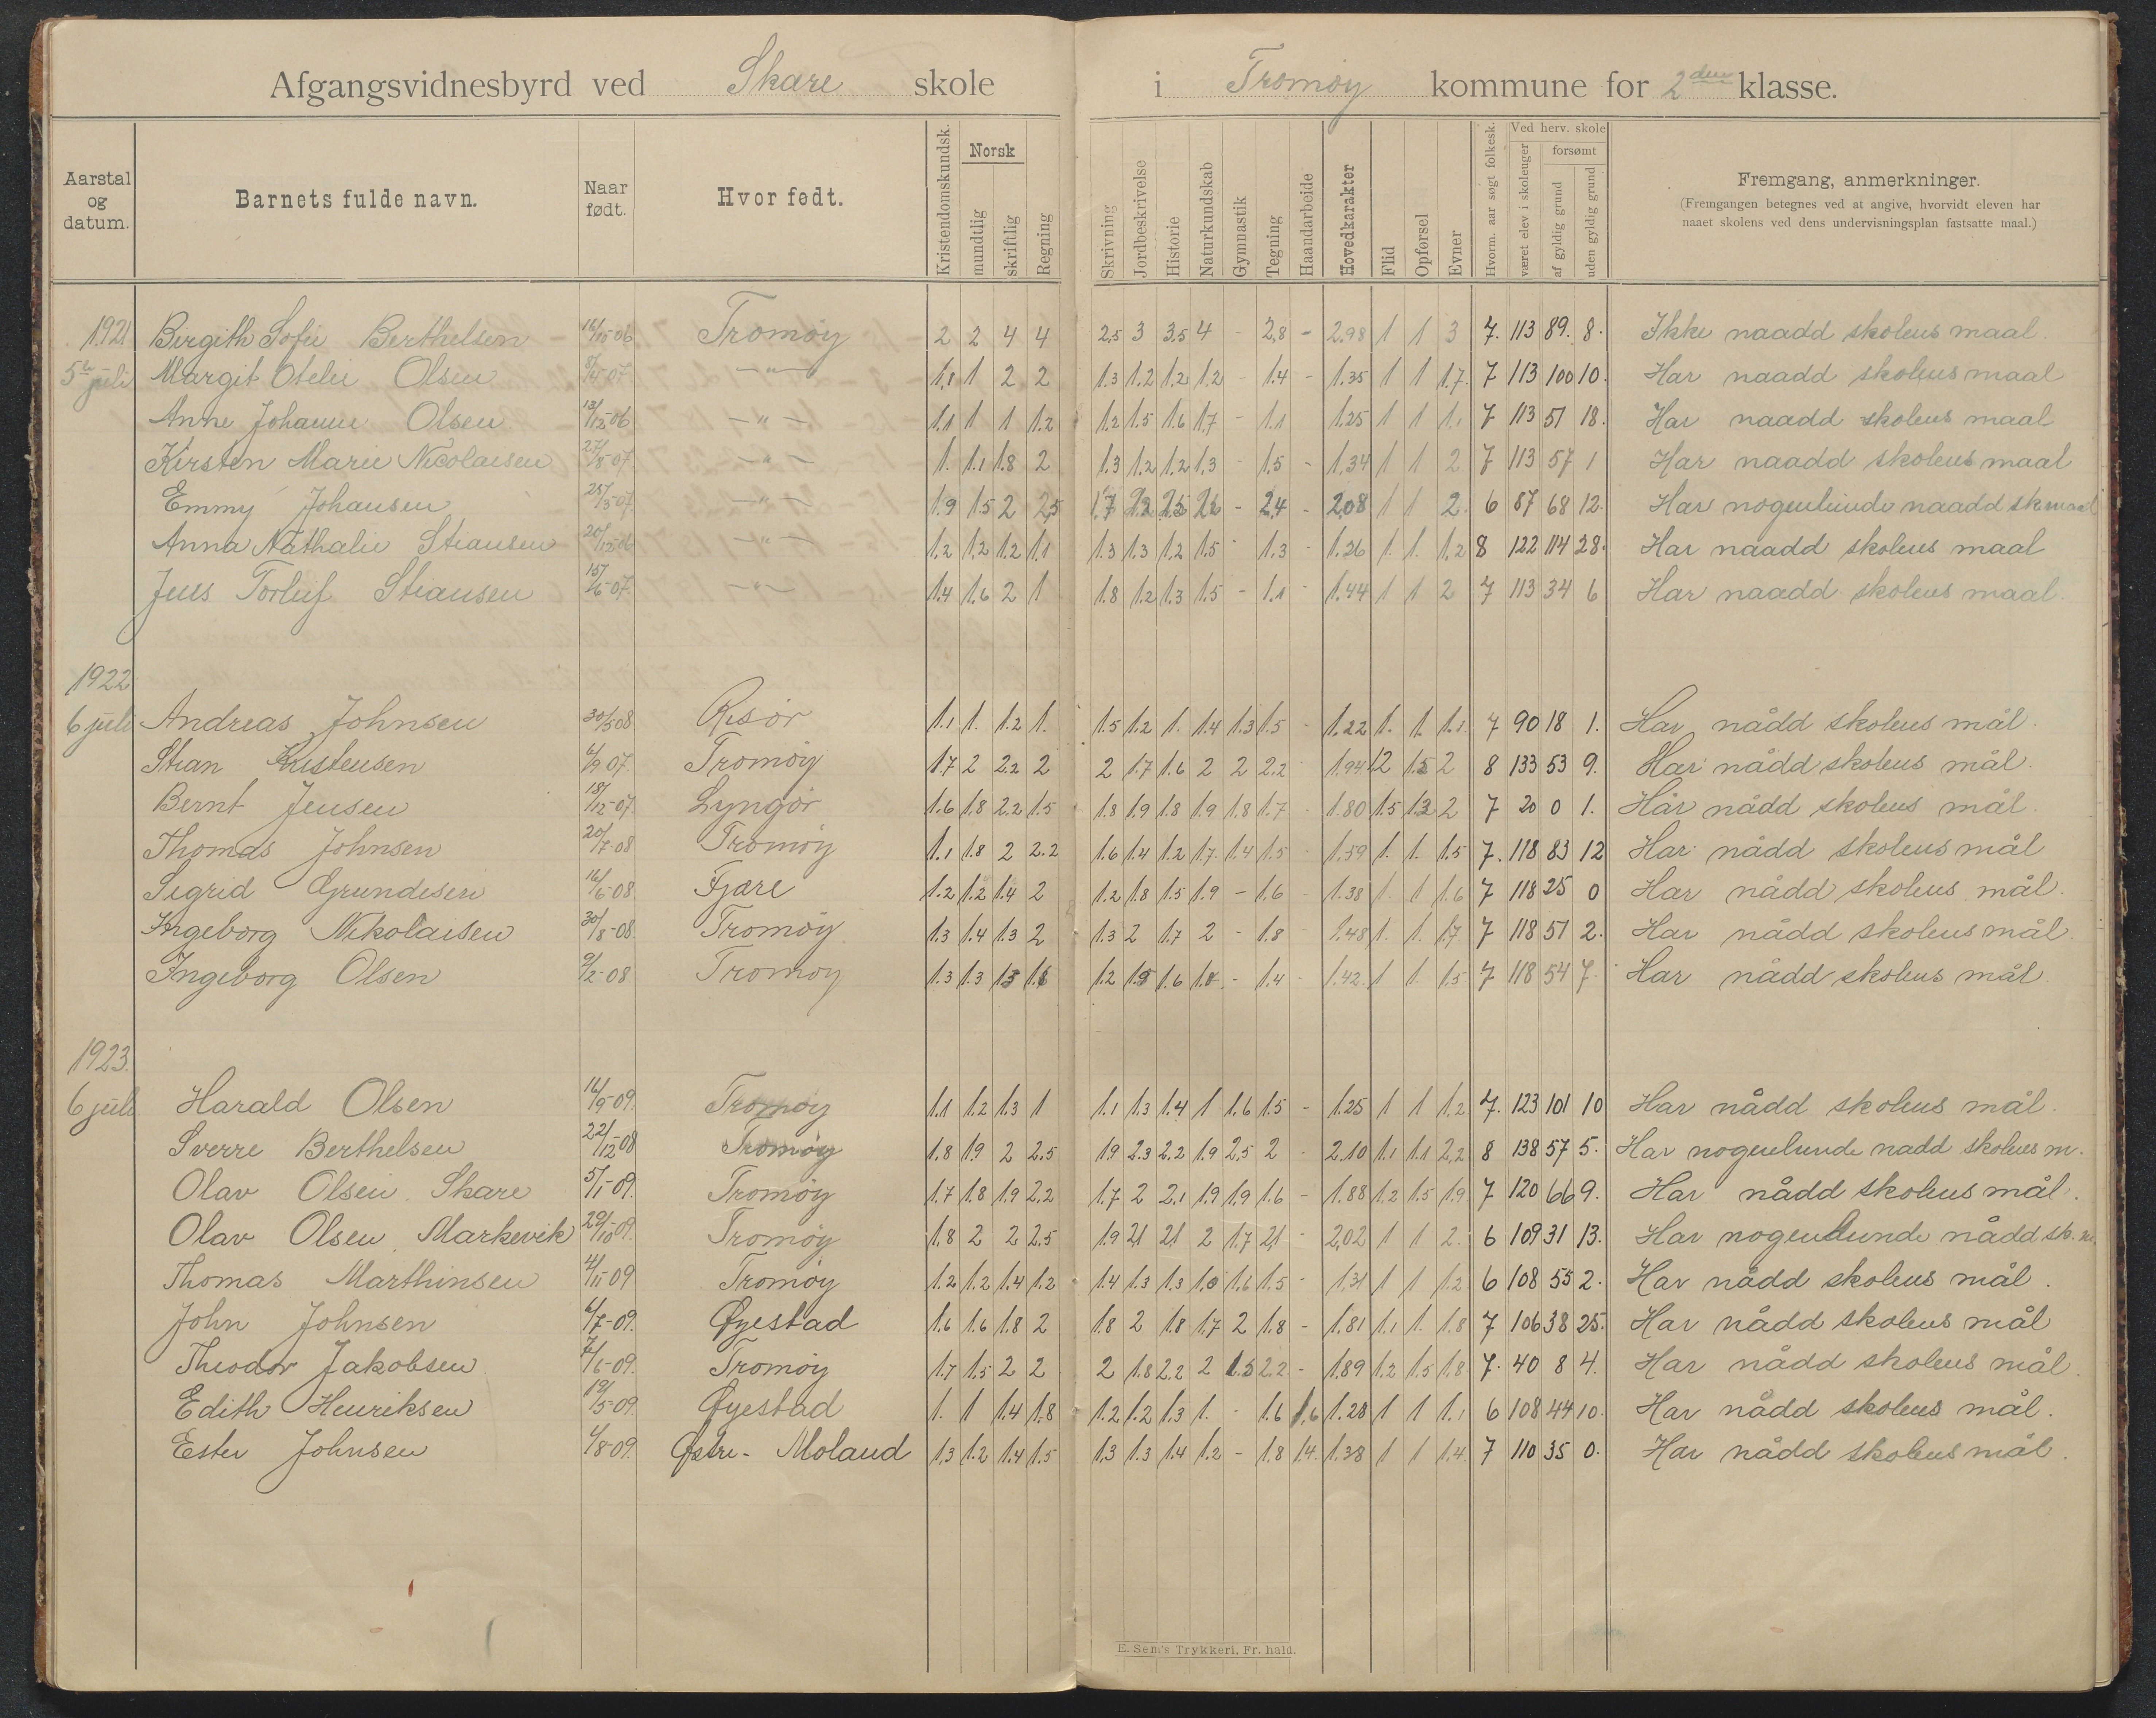 Afgangsvidnesbyrd ved Skare skole i Tromøy kommune for 2den klasse.
Aarstal og datum. Barnets fulde navn. Naar født. Hvor født. Kristendomskundsk. Norsk mundtlig skriftlig Regning Skrivning Jordbeskrivelse Historie Naturkundskab Gymnastik Tegning Haandarbeide Hovedkarakter Flid Opførsel Evner Hvorm. aar søgt folkesk. Ved herv. skole været elev i skoleuger forsømt af gyldig grund uden gyldig grund Fremgang, anmerkninger.
(Fremgangen betegnes ved at angive, hvorvidt eleven har
naaet skolens ved dens undervisningsplan fastsatte maal.)
1921 Birgith Sofie Berthelsen 16/10-06 Tromøy 2 2 4 4 2,5 3 3,5 4 - 2,8 - 2.98 1 1 3 7. 113 89. 8. Ikke naadd skolens maal.
5te juli Margit Otelie Olsen 8/4-07 -"- 1,1 1 2 2 1.3 1.2 1.2 1.2 - 1.4 - 1.35 1 1 1.7. 7 113 100 10. Har naadd skolens maal
Anne Johanne Olsen 13/12-06 -"- 1.1 1 1 1.2 1.2 1.5 1.6 1.7 - 1.1 1.25 1 1 1.1 7 113 51 18. Har naadd skolens maal
Kirsten Marie Nicolaisen 27/8-07 -"- 1. 1.1 1.8 2 1.3 1.2 1.2 1.3 - 1.5 - 1.34 1 1 2 7 113 57 1 Har naadd skolens maal
Emmy Johansen 25/3-07 -"- 1.9 1.5 2 2,5 1.7 - 2,4 - 2,08 1 1 2. 6 87 68 12. Har nogenlunde naadd sk maal
Anna Nathalie Stiansen 20/12-06 -"- 1.2 1.2 1.2 1.1 1.3 1.3 1.2 1.5 - 1.3 - 1.26 1. 1. 1,2 8 122 114 28. Har naadd skolens maal
Jens Torleif Stiansen 15/6-07. -"- 1.4 1.6 2 1 1.8 1.2 1.3 1.5 - 1.1 - 1.44 1 1 2 7 113 34 6 Har naadd skolens maal.
1922
6 juli Andreas Johnsen 30/5 08 Risør 1.1 1. 1.2 1. 1.5 1.2 1. 1.4 1.3 1.5 - 1.22 1. 1. 1.1 7 90 18 1. Har nådd skolens mål.
Stian Kristensen 6/9 07. Tromøy 1.7 2 2.2 2 2 1.7 1.6 2 2 2.2 1.94 1.2 1.5 2 8 133 53 9. Har nådd skolens mål.
Bernt Jensen 18/12-07. Lyngør 1.6 1.8 2.2 1.5 1.8 1.9 1.8 1.9 1.8 1.7 - 1.80 1.5 1.3 2 7 20 0 1. Har nådd skolens mål.
Thomas Johnsen 20/7-08 Tromøy 1.1 1.8 2 2.2 1.6 1.4 1.2 1.7. 1.4 1.5 - 1.59 1. 1. 1.5 7. 118 83 12 Har nådd skolens mål
Sigrid Grundesen 16/6-08 Fjære 1.2 1.2 1.4 2 1.2 1.8 1.5 1.9 - 1.6 - 1.38 1. 1 1.6 7 118 25 0 Har nådd skolens mål.
Ingeborg Nikolaisen 30/8-08 Tromøy 1.3 1.4 1.3 2 1.3 2 1.7 2 - 1.8 - 1.48 1. 1. 1.7 7 118 51 2. Har nådd skolens mål.
Ingeborg Olsen 9/2-08 Tromøy 1.3 1.3 1.2 1.6 - 1.4 - 1.42. 1 1. 1.5 7 118 54 7. Har nådd skolens mål.
1923.
6 juli Harald Olsen 16/9-09. Tromøy 1.1 1.2 1.3 1 1.1 1.3 1.4 1 1.6 1.5 - 1.25 1 1 1.2 7. 123 101 10 Har nådd skolens mål.
Sverre Berthelsen 22/12-08 Tromøy 1.8 1.9 2 2.5 1.9 2.3 2.2 1.9 2.5 2 - 2.10 1.1 1.1 2,2 8 138 57 5. Har nogenlunde nadd skolens m.
Olav Olsen. Skare 5/1-09. Tromøy 1.7 1.8 1.9 2,2 1.7 2 2.1 1.9 1.9 1.6 - 1.88 1.2 1.5 1.9 7 120 66 9. Har nådd skolens mål.
Olav Olsen, Markevik 29/10-09. Tromøy 1.8 2 2 2.5 1.9 2,1 2,1 2 1.7 2,1 - 2,02 1 1 2. 6 109 31 13. Har nogenlunde nådd sk. m.
Thomas Marthinsen 4/11-09 Tromøy 1.2 1.2 1.4 1.2 1.4 1.3 1.3 1.6 1.5 - 1.31 1 1 1.2 6 108 55 2. Har nådd skolens mål.
John Johnsen 6/7-09. Øyestad 1.6 1.6 1.8 2 1.8 2 1.8 1.7 2 1.8 - 1.81 1.1 1. 1.8 7 106 38 25. Har nådd skolens mål
Theodor Jakobsen 7/6-09. Tromøy 1.7 1.5 2 2 2 1.8 2.2 2 1.5 2.2 - 1.89 1.2 1.5 1.8 7. 40 8 4. Har nådd skolens mål.
Edith Henriksen 19/5-09. Øyestad 1. 1 1.4 1.8 1.2 1.2 1.3 1. - 1.6 1.6 1.28 1 1 1.1 6 108 44 10. Har nådd skolens mål.
Ester Johnsen 6/8-09. Østre-Moland 1,3 1.2 1.4 1.5 1,3 1.3 1.4 1.2 - 1.8 1.4. 1.38 1 1 1.4. 7 110 35 0. Har nådd skolens mål.
E. Sem's Trykkeri, Fr. hald.